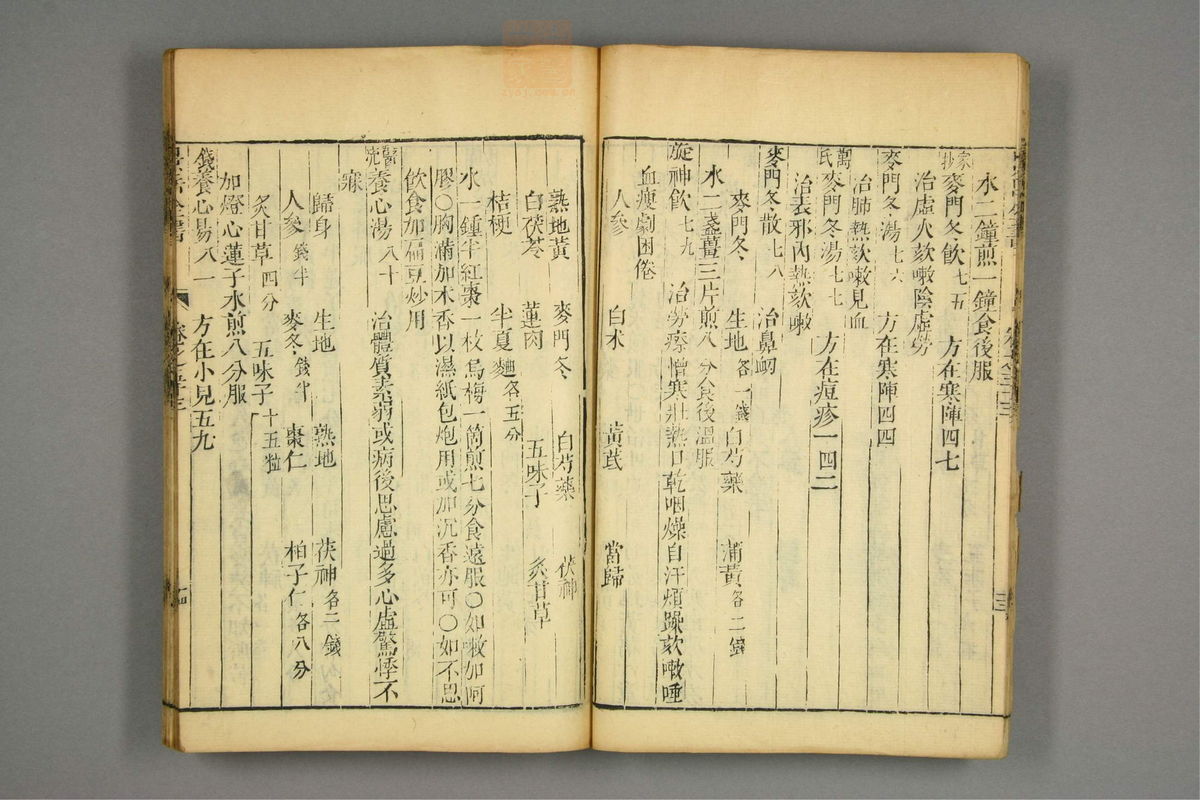 水二鐘煎一鐘食後服
家抄麥門冬飲七五　方在寒陣四七
治虛火欬嗽陰虛勞
麥門冬湯七六　方在寒陣四四
治肺熱欬嗽見血
萬氏麥門冬湯七七　方在痘疹一四二
治表邪內熱欬嗽
麥門冬散七八　治鼻衂
麥門冬　生地各一錢　白芍藥　蒲黃各二錢
水二盞薑三片煎八分食後溫服
旋神飲七九　治勞瘵憎寒壯熱口乾咽燥自汗煩躁欬嗽唾
血瘦劇困倦
人參　白术　黃芪　當歸
熟地黃　麥門冬　白芍藥　茯神
白茯苓　蓮肉　五味子　炙甘草
桔梗　半夏麯各五分
水一鍾半紅棗一枚烏梅一箇煎七分食遠服○如嗽加阿
膠○胸滿加木香以濕紙包炮用或加沉香亦可○如不思
飲食加扁豆炒用
醫統養心湯八十　治體質素弱或病後思慮過多心虛驚悸不
寐
歸身　生地　熟地　茯神各二錢
人參錢半　麥冬錢半　棗仁　柏子仁各八分
炙甘草四分　五味子十五粒
加燈心蓮子水煎八分服
錢養心湯八一　方在小兒五九